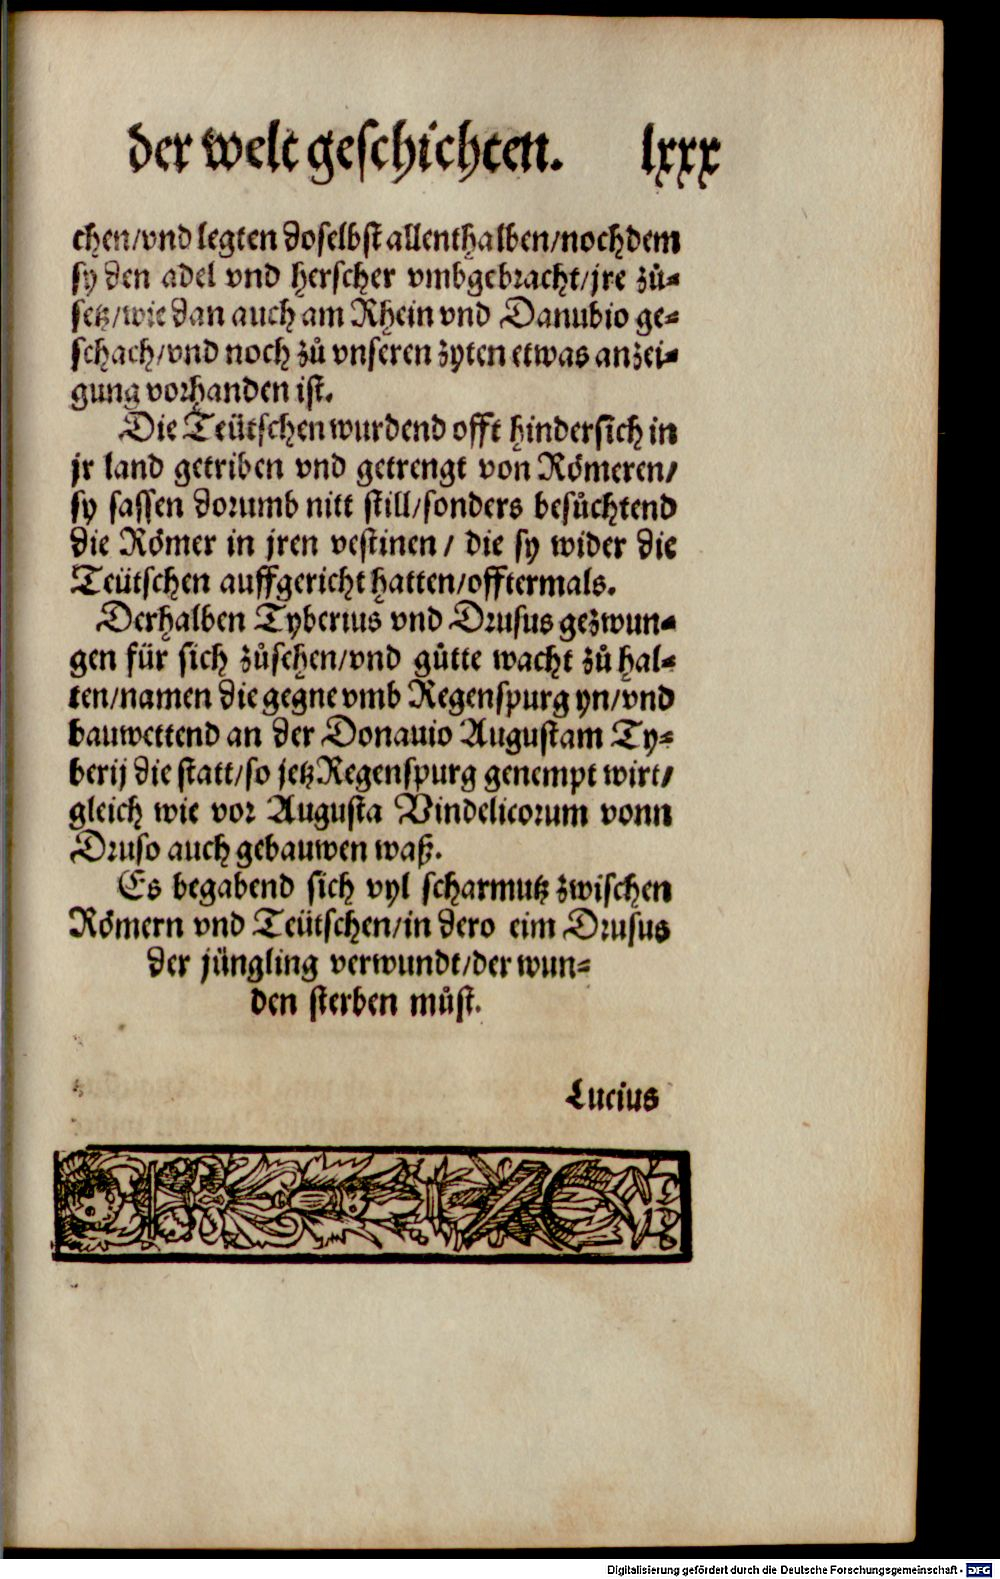 der welt geschichten. lxxx
chen/vnd legten doselbst allenthalben/nochdem
sy den adel vnd herscher vmbgebracht/jre zů-
setz/wie dan auch am Rhein vnd Danubio ge-
schach/vnd noch zů vnseren zyten etwas anzei-
gung vorhanden ist.
Die Teütschen wurdend offt hindersich in
jr land getriben vnd getrengt von Römeren/
sy sassen dorumb nitt still/sonders besůchtend
die Römer in jren vestinen/ die sy wider die
Teütschen auffgericht hatten/offtermals.
Derhalben Tyberius vnd Drusus gezwun-
gen für sich zůsehen/vnd gůtte wacht zů hal-
ten/namen die gegne vmb Regenspurg yn/vnd
bauwettend an der Donauio Augustam Ty-
berij die statt/so jetz Regenspurg genempt wirt/
gleich wie vor Augusta Vindelicorum vonn
Druso auch gebauwen waß.
Es begabend sich vyl scharmutz zwischen
Römern vnd Teütschen/in dero eim Drusus
der jüngling verwundt/der wun-
den sterben můst.
Lucius
Digitalisierung gefördert durch die Deutsche Forschungsgemeinschaft - DFG